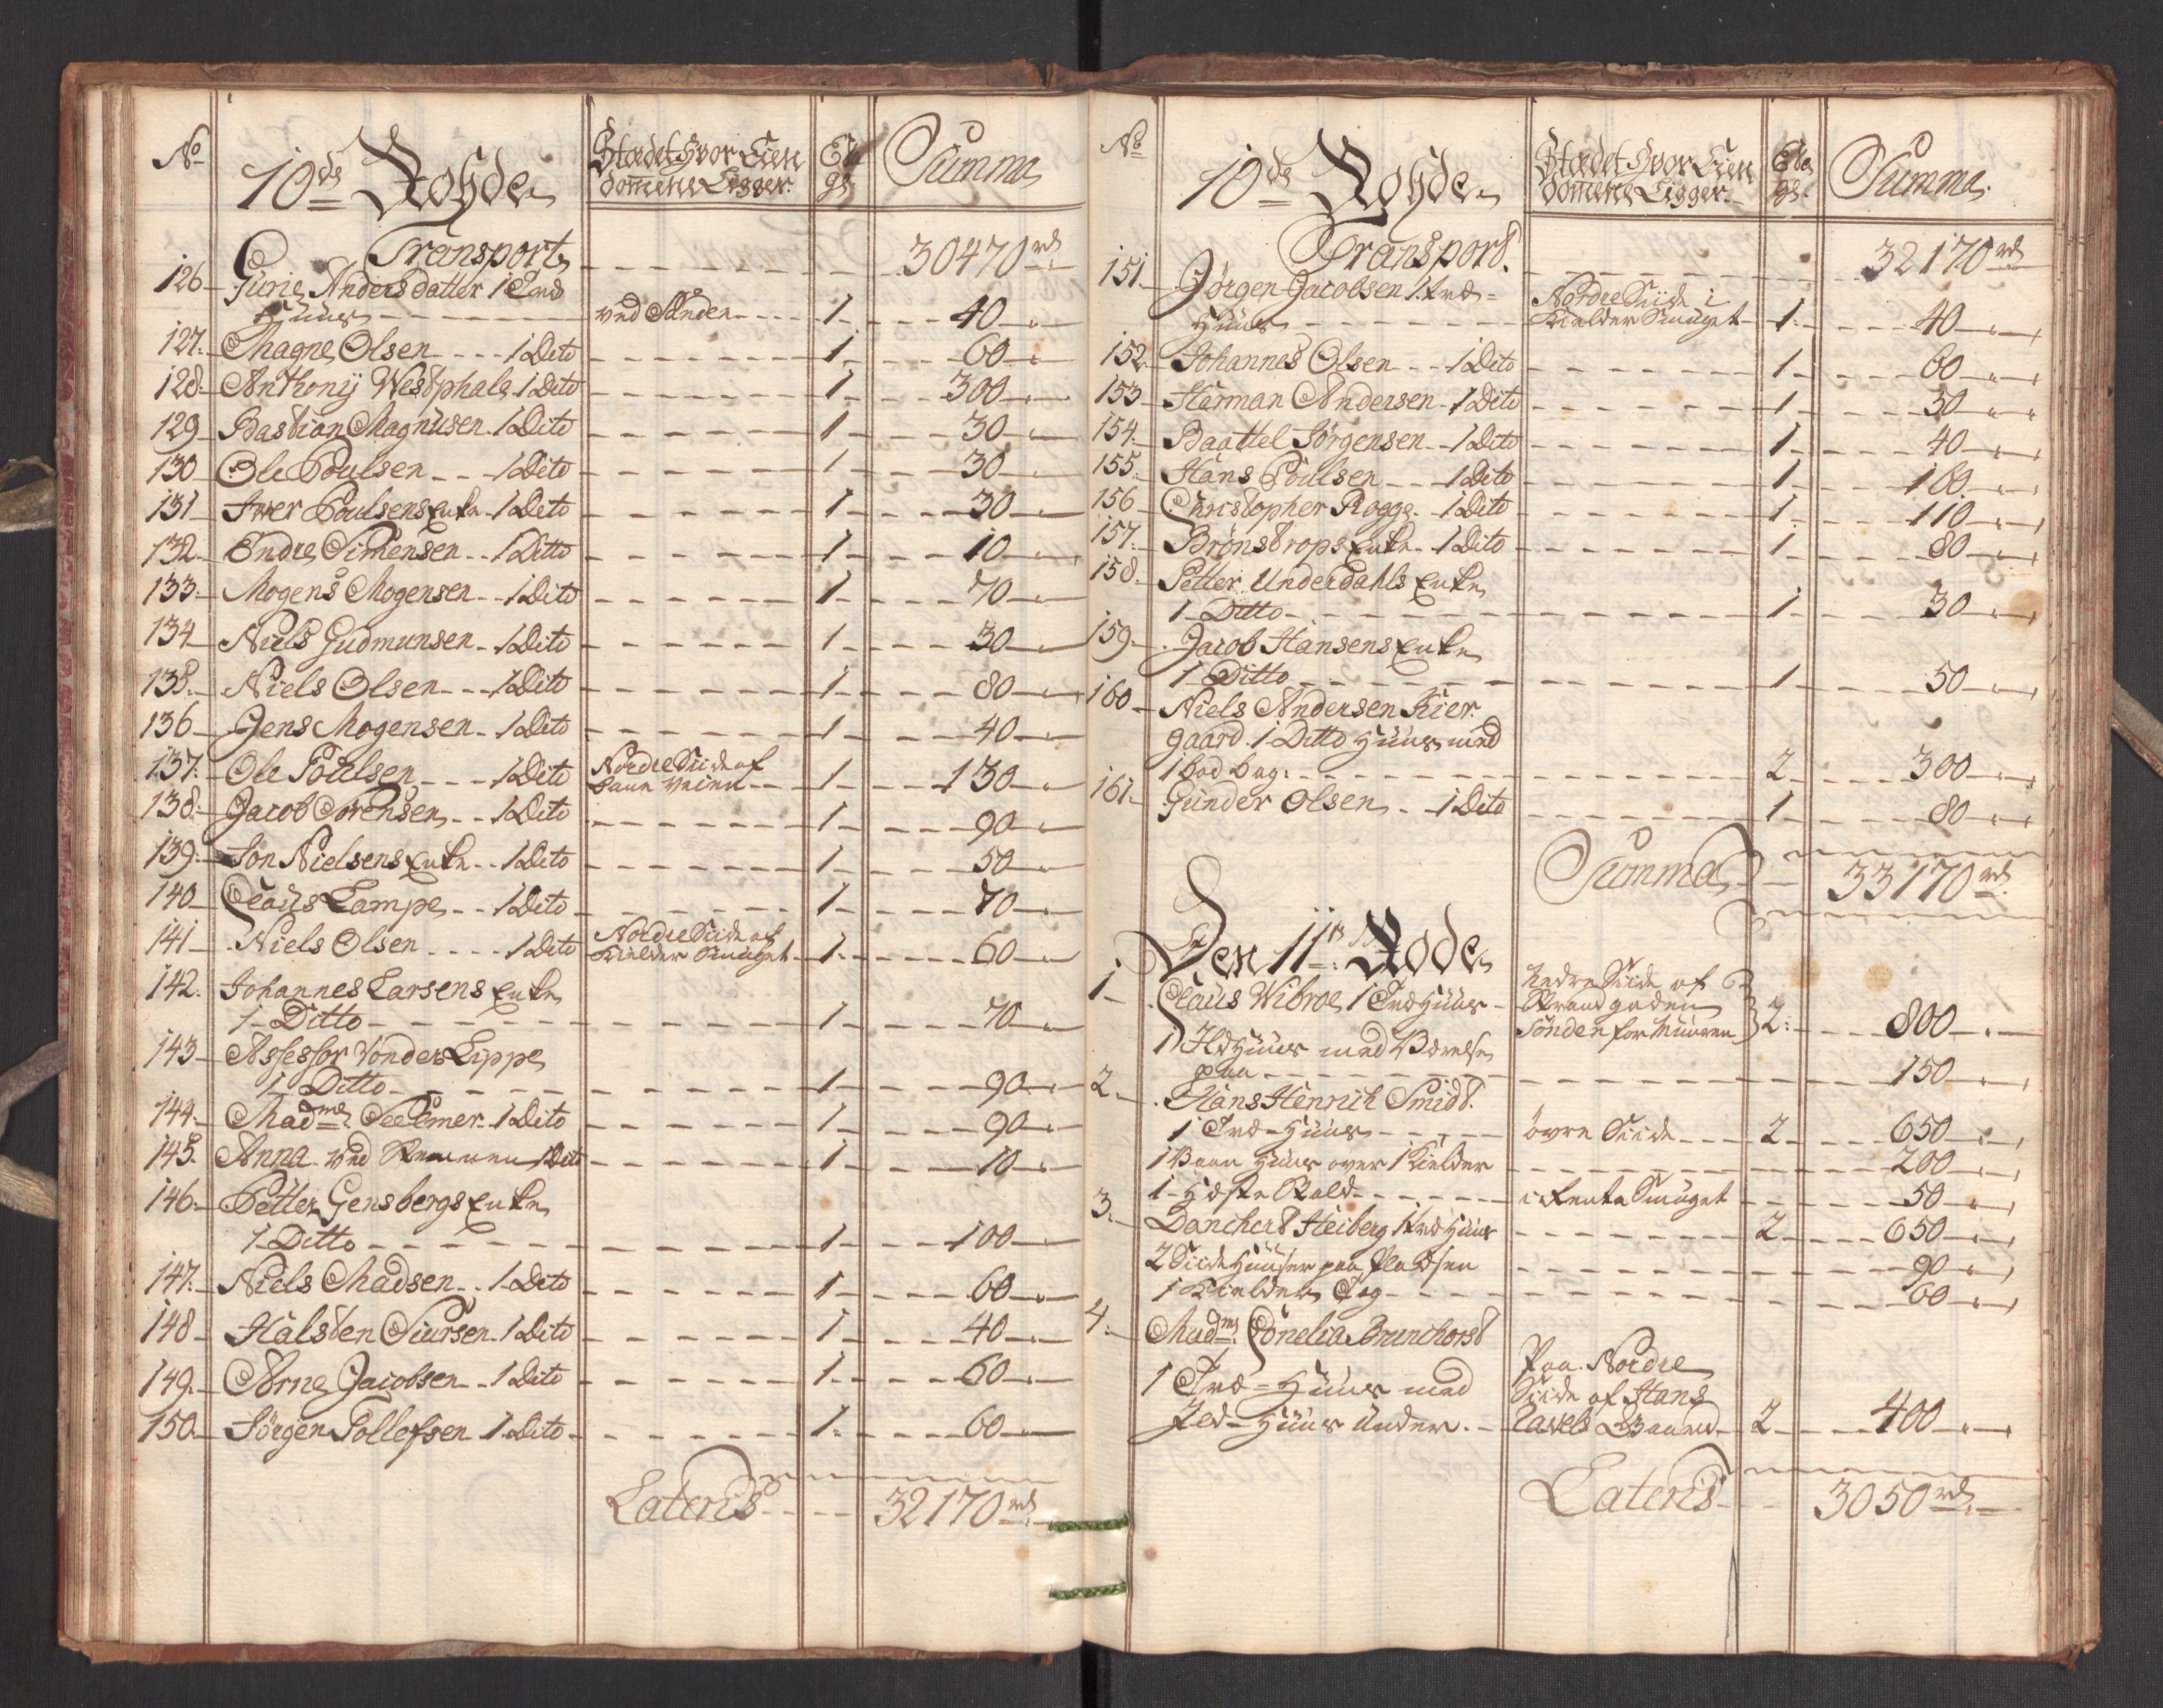 No 10de Rohde Stædet hvor Eien Eta Summa
dommene Ligger: ger
Transport 30470 rd
126 Gurie Andersdatter 1 Træ
Huus ved Stranden 1 40
127 Magne Olsen 1 Dito 1 60
128 Anthonij Westphale 1 Dito 1 300
129 Bastian Magnusen 1 Dito 1 30
130 Ole Poulsen 1 Dito 1 30
131 Iwer Poulsens Enke 1 Dito 1 30
132 Endre Simensen 1 Ditto 1 10
133 Mogens Mogensen 1 Dito 1 70
134 Niels Gudmunsen 1 Dito 1 30
135 Niels Olsen 1 Dito 1 80
136 Jens Mogensen 1 Dito 1 40
137 Ole Poulsen 1 Dito Nordre Siide af
veien 1 130
138 Jacob Sørensen 1 Dito 1 90
139 Søn Nielsens Enke 1 Dito 1 50
140 Claus Lampe 1 Dito 1 70
141 Niels Olsen 1 Dito Nordre Siide af
Kielder Smuget 1 60
142 Johannes Larsens Enke
1 Ditto 1 70
143 Assessor Vonder Lippe
1 Ditto 1 90
144 Madme 1 Dito 1 90
145 Anna ved 1 Dito 1 10
146 Petter Gensbergs Enke
1 Ditto 1 100
147 Niels Madsen 1 Dito 1 60
148 Halsten Siursen 1 Dito 1 40
149 Arne Jacobsen 1 Dito 1 60
150 Jørgen Tollefsen 1 Dito 1 60
Lateris 32170 rd
No 10de Rohde Stædet hvor Eien Eta Summa
dommene Ligger ger
Transport 32170 rd
151 Jørgen Jacobsen 1 Træ= Nordre Siide i
Huus Kielder Smuget 1 40
152 Johannes Olsen 1 Dito 1 60
153 Harman Andersen 1 Dito 1 50
154 Baattel Jørgensen 1 Dito 1 40
155 Hans Poulsen 1 Dito 1 160
156 Christopher Rogge 1 Dito 1 110
157 Brønstrops Enke 1 Dito 1 80
158 Petter Underdahls Enke
1 Ditto 1 30
159 Jacob Hansens Enke
1 Ditto 1 50
160 Niels Andersen Kier
gaard 1 Ditto Huus med
1 bod bag 2 300
161 Gunder Olsen 1 Dito 1 80
Summa 33170 rd
Den 11te Rode
1 Claus Wibroe 1 Træ Huus Nedre Siide af
Strandgaden
Sønden for Muuren 2 800
1 Ild Huus med Værelse
paa 150
2 Hans Henrich Smidt
1 Træ-Huus øvre Siide 2 650
1 Huus over 1 Kielder 200
1 Heste Stald i Smuget 50
3 Danckert Heiberg 1 Træ Huus 2 650
2 Siide Huuser paa Pladsen 90
1 Kielder 60
4 Madme Conelia Brunchorst
1 Træ-Huus med Paa Nordre
Ild-Huus under Siide af Hans
Gaard 2 400
Lateris 3050 rd